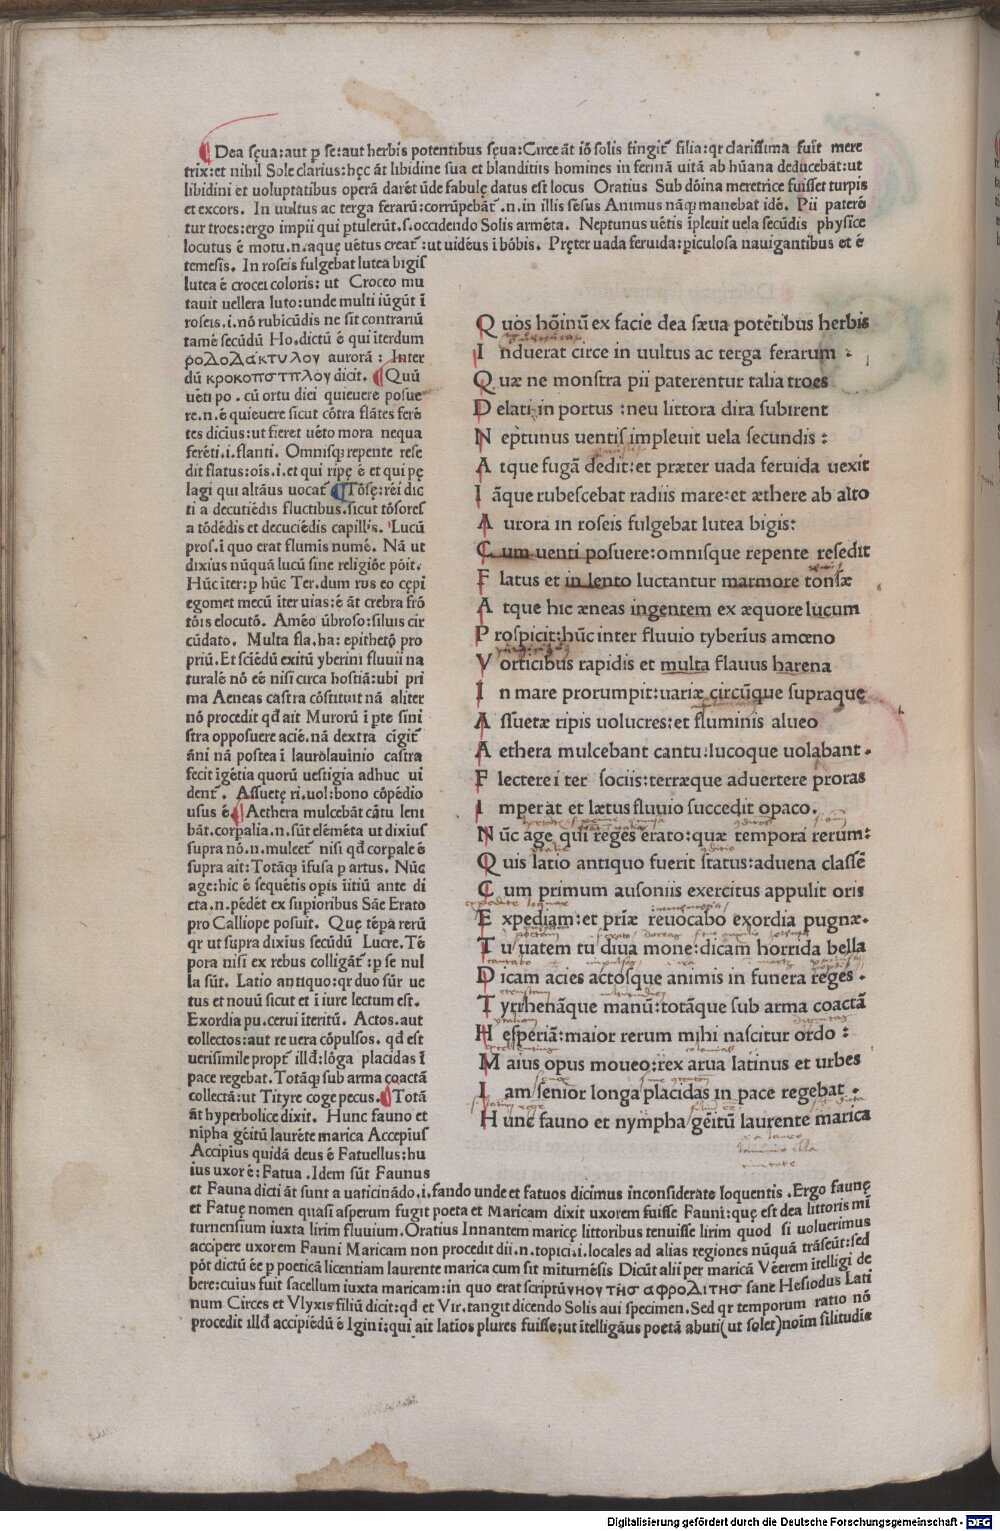 Dea sęua:aut p̱ se:aut herbis potentibus sęua:Circe āt iō solis fingit᷑ filia:qr clarissima fuit mere
trix:et nihil Sole clarius:hęc āt libidine sua et blanditiis homines in ferinā uitā ab hūana deducebāt:ut
libidini et uoluptatibus operā darēt ūde fabulę datus est locus Oratius Sub dōina meretrice fuisset turpis
et excors. In uultus ac terga ferarū:corrūpebāt᷑.n.in illis sēsus Animus nāqꝫ manebat idē. Pii paterē
tur troes:ergo impii qui ꝑtulerūt.s.occidendo Solis armēta. Neptunus uētis īpleuit uela secūdis physice
locutus ē motu.n.aquę uētus creat᷑:ut uidēus ī bōbis. Pręter uada feruida:ꝑiculosa nauigantibus et ē
temesis. In roseis fulgebat lutea bigis
lutea ē crocei coloris: ut Croceo mu
tauit uellera luto:unde multi iūgūt ī
roseis.i.nō rubicūdis ne sit contrariū
tamē secūdū Ho.dictū ē qui iterdum
ροΔοΔάκτυλου aurorā: Inter
dū κροκοπεπλου dicit. Quū
uēti po. cū ortu diei quieuere posue
re.n.ē quieuere sicut cōtra flātes ferē
tes dicius:ut fieret uēto mora nequa
ferēti.i.flanti. Omnisqꝫ repente rese
dit flatus:oīs.i.et qui ripę ē et qui pę
lagi qui altāus uocat᷑ Tōsę:rēi dic
ti a decutiēdis fluctibus.sicut tōsores
a tōdēdis et decuciēdis capillis. Lucū
pros.ī quo erat fluminis numē. Nā ut
dixius nūquā lucū sine religiōe pōit.
Hūc iter:p̱ hūc Ter.dum rus eo cępi
egomet mecū iter uias:ē āt crebra frō
tōis elocutō. Amēo ūbroso:siluis cir
cūdato. Multa fla.ha: epithetō pro
priū. Et sciēdū exitū yberini fluuii na
turalē nō eē nisi circa hostiā:ubi pri
ma Aeneas castra cōstituit nā aliter
nō procedit qd̄ ait Murorū ī p̱te sini
stra opposuere aciē.nā dextra cīgit᷑
āni nā postea ī laurolauinio castra
fecit īgētia quorū uestigia adhuc ui
dent᷑. Assuetę ri.uol:bono cōpēdio
usus ē. Aethera mulcebāt cātu leni
bāt.corpalia.n.sūt elemēta ut dixius
supra nō.n.mulcet᷑ nisi qd̄ corpale ē
supra ait:Totāqꝫ īfusa p̱ artus. Nūc
age:hic ē seq̄uētis opis īitiū ante di
cta.n.pēdēt ex sup̱ioribus Sāe Erato
pro Calliope posuit. Quę tēpa rerū
qr ut supra dixius secūdū Lucre.Tē
pora nisi ex rebus colligāt᷑:p̱ se nul
la sūt. Latio antiquo:qr duo sūr ue
tus et nouū sicut et ī iure lectum est.
Exordia pu.cerui īteritū. Actos.aut
collectos:aut re uera cōpulsos. qd̄ est
uerisimile propt᷑ illd̄:lōga placidas ī
pace regebat.Totāqꝫ sub arma coactā
collectā:ut Tityre coge pecus. Totā
āt hyperbolice dixit. Hunc fauno et
nīpha gēitū laurēte marica Accepius
Accipius quidā deus ē Fatuellus:hu
ius uxor ē:Fatua .Idem sūt Faunus
et Fauna dicti āt sunt a uaticinādo.i.fando unde et fatuos dicimus inconsiderate loquentis .Ergo faunę
et Fatuę nomen quasi asperum fugit poeta et Maricam dixit uxorem fuisse Fauni:quę est dea littoris mī
turnensium iuxta lirim fluuium.Oratius Innantem maricę littoribus tenuisse lirim quod si uoluerimus
accipere uxorem Fauni Maricam non procedit dii.n.topici.i.locales ad alias regiones nūquā trāseūt:sed
pōt dictū ēe p̱ poeticā licentiam laurente marica cum sit miturnēsis Dicūt alii per maricā Vēerem ītelligi de
bere:cuius fuit sacellum iuxta maricam:in quo erat scriptū υνου τῆσ αφροΔιτησ sane Hesiodus Lati
num Circes et Vlyxis filiū dicit:qd̄ et Vir.tangit dicendo Solis aui specimen.Sed qr temporum ratio nō
procedit illd̄ accipiēdū ē Igini:qui ait latios plures fuisse:ut ītelligāus poetā abuti(ut solet)noīm silitudie
Quos hōinū ex facie dea sæua potētibus herbis
Induerat circe in uultus ac terga ferarum:
Quæ ne monstra pii paterentur talia troes
Delati in portus :neu littora dira subirent
Neptunus uentis impleuit uela secundis:
Atque fugā dedit:et præter uada feruida uexit
Iāque rubescebat radiis mare:et æthere ab alto
Aurora in roseis fulgebat lutea bigis:
Cum uenti posuere:omnisque repente resedit
Flatus et in lento luctantur marmore tonsæ
Atque hic æneas ingentem ex æquore lucum
Prospicit:hūc inter fluuio tyberīus amœno
Vorticibus rapidis et multa flauus harena
In mare prorumpit:uariæ circūque supraque
Assuetæ ripis uolucres:et fluminis alueo
Aethera mulcebant cantu:lucoque uolabant.
Flectere iter sociis:terræque aduertere proras
Imperat et lætus fluuio succedit opaco.
Nūc age qui reges erato:quæ tempora rerum:
Quis latio antiquo fuerit status:aduena classē
Cum primum ausoniis exercitus appulit oris
Expediam:et priæ reuocabo exordia pugnæ.
Tu uatem tu diua mone:dicam horrida bella
Dicam acies actosque animis in funera reges.
Tyrrhenāque manū:totāque sub arma coactā
Hesperiā:maior rerum mihi nascitur ordo:
Maius opus moueo:rex arua latinus et urbes
Iam senior longa placidas in pace regebat.
Hunc fauno et nympha gēitū laurente marica
Digitalisierung gefördert durch die Deutsche Forschungsgemeinschaft - DFG